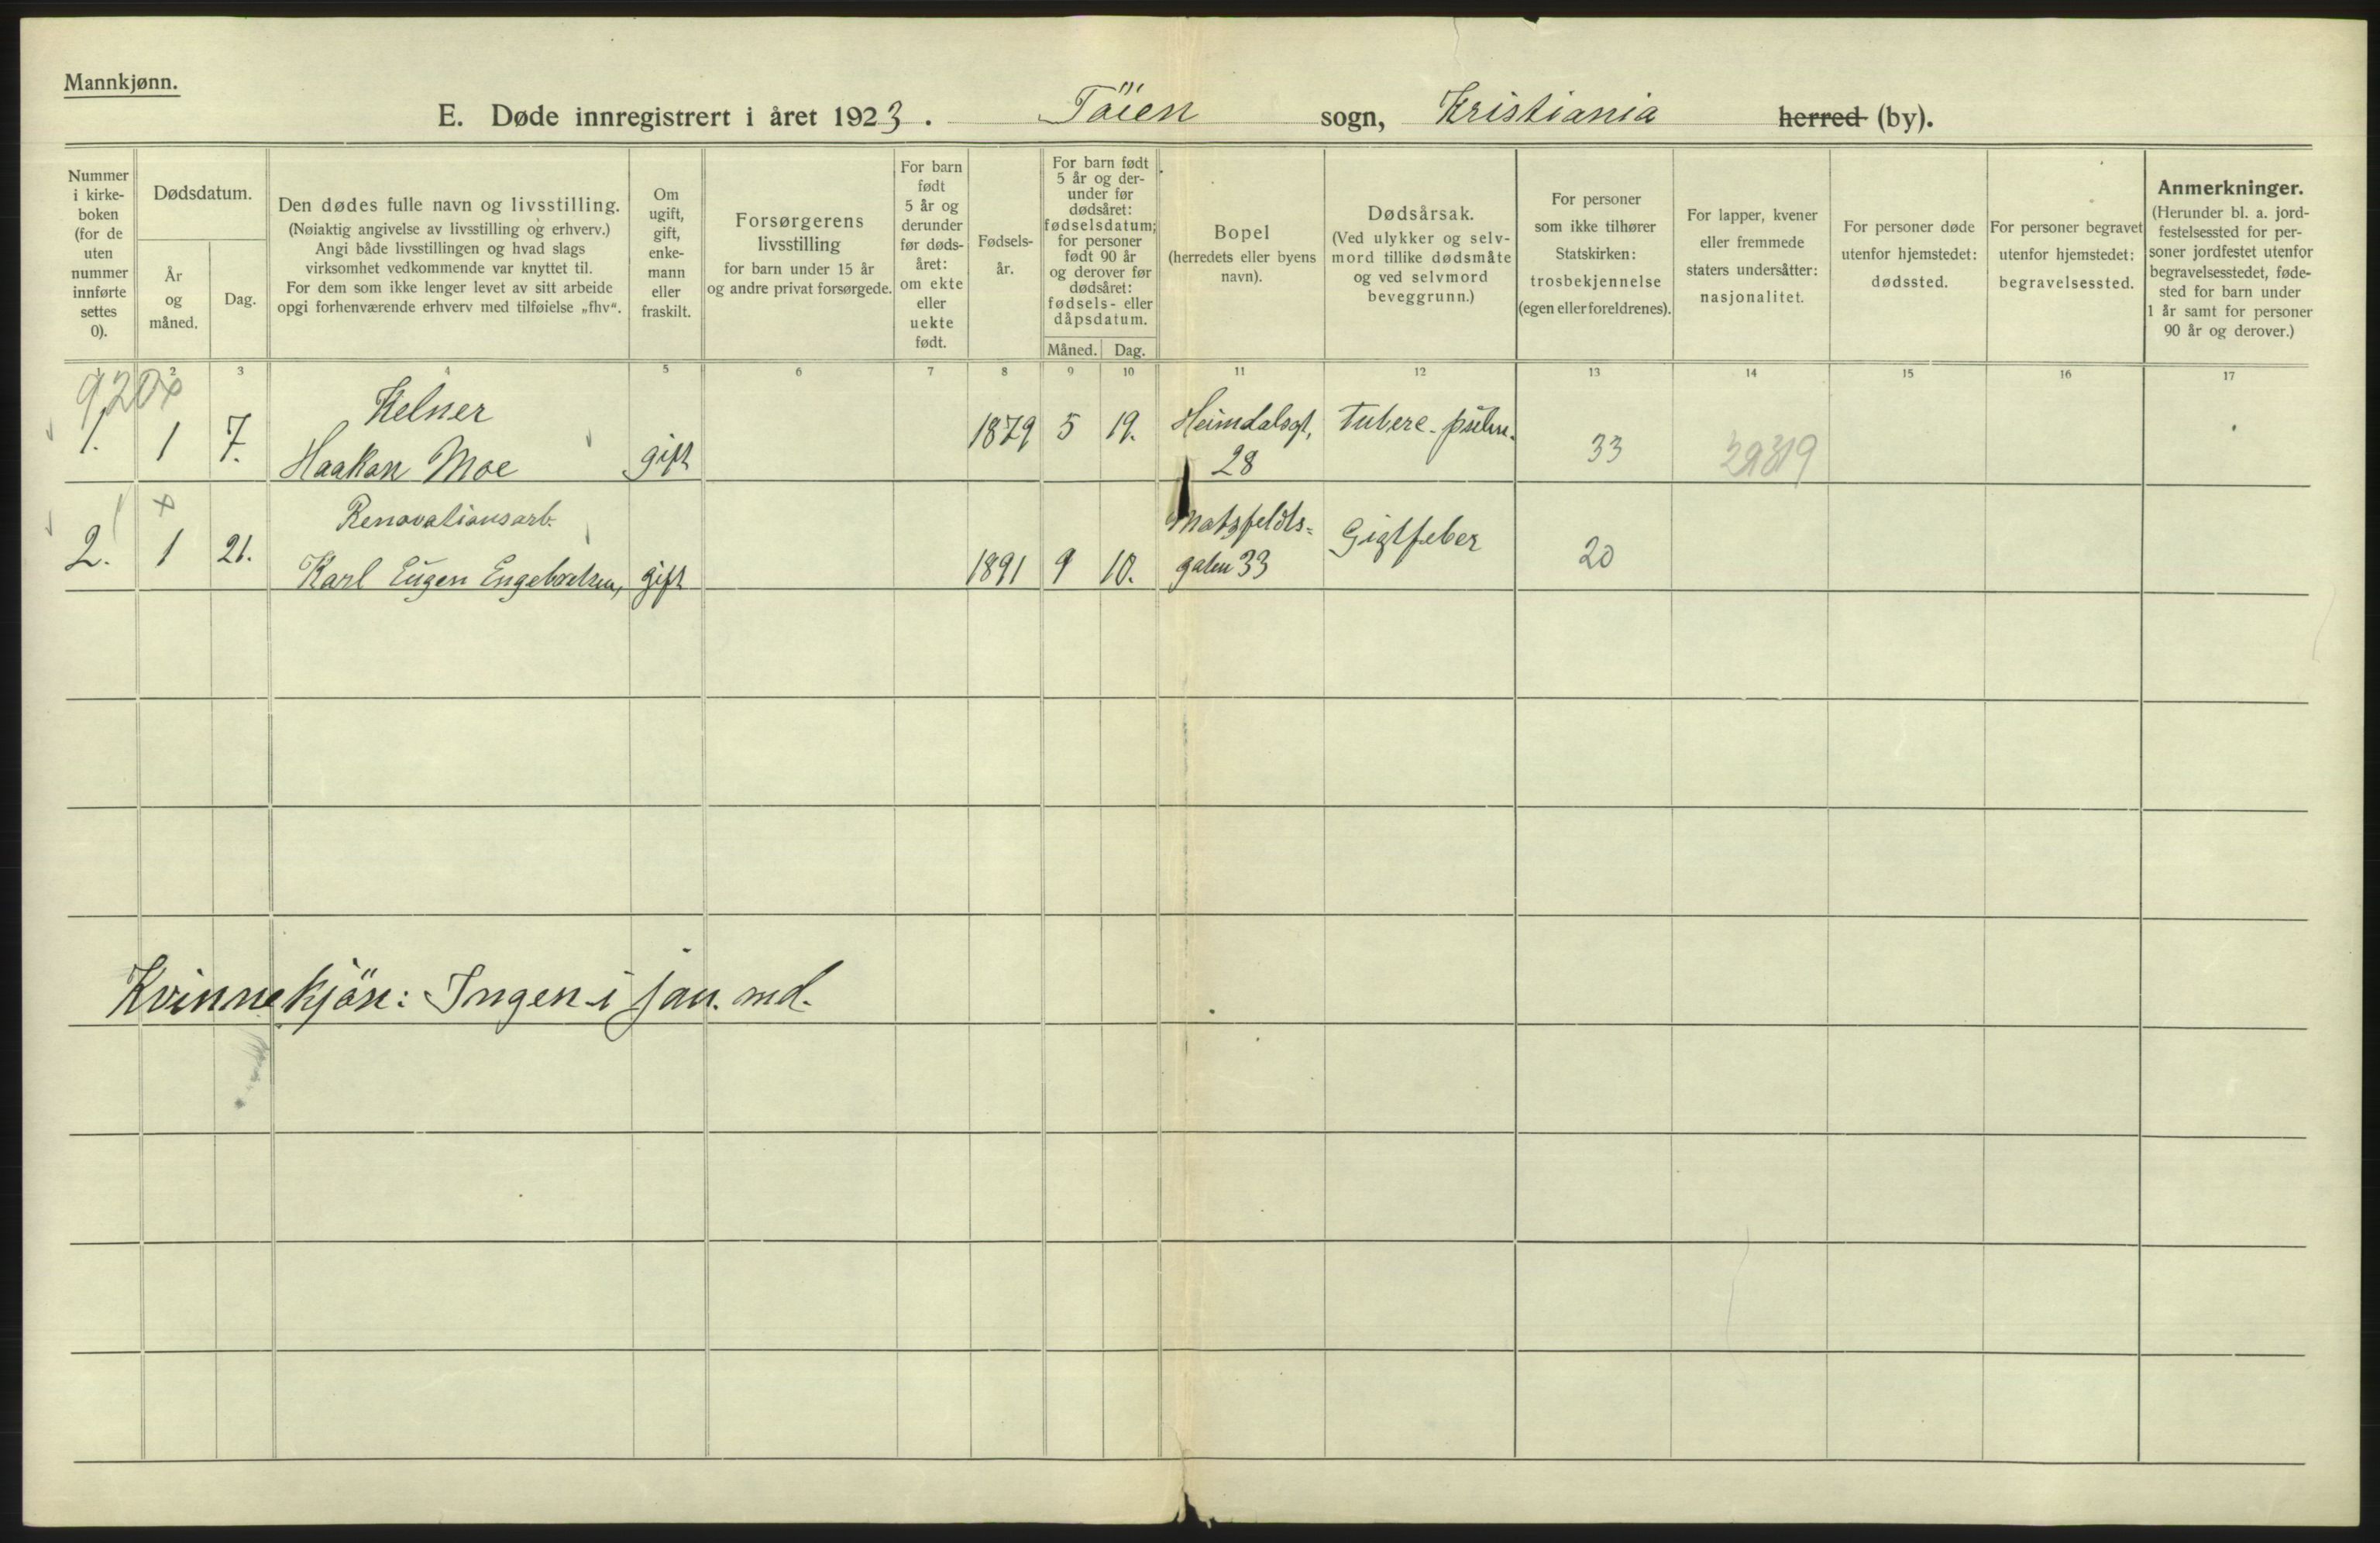 Mannkjønn.
E. Døde innregistrert i året 1923. Töien sogn, Kristiania herred (by).
Nummer
i kirke-
boken
(for de
uten
nummer
innførte
settes
0).
Dødsdatum.
År
og
måned.
Dag.
Den dødes fulle navn og livsstilling.
(Nøiaktig angivelse av livsstilling og erhverv.)
Angi både livsstillingen og hvad slags
virksomhet vedkommende var knyttet til.
For dem som ikke lenger levet av sitt arbeide
opgi forhenværende erhverv med tilføielse „fhv“.
Om
ugift,
gift,
enke-
mann
eller
fraskilt.
Forsørgerens
livsstilling
for barn under 15 år
og andre privat forsørgede.
For barn
født
5 år og
derunder
før døds-
året:
om ekte
eller
uekte
født.
Fødsels-
år.
For barn født
5 år og der-
under før
dødsåret:
fødselsdatum;
for personer
født 90 år
og derover før
dødsåret:
fødsels- eller
dåpsdatum.
Måned. Dag.
Bopel
(herredets eller byens
navn).
Dødsårsak.
(Ved ulykker og selv-
mord tillike dødsmåte
og ved selvmord
beveggrunn.)
For personer
som ikke tilhører
Statskirken:
trosbekjennelse
(egen eller foreldrenes).
For lapper, kvener
eller fremmede
staters undersåtter:
nasjonalitet.
For personer døde
utenfor hjemstedet:
dødssted.
For personer begravet
utenfor hjemstedet:
begravelsessted.
Anmerkninger.
(Herunder bl. a. jord-
festelsessted for per-
soner jordfestet utenfor
begravelsesstedet, føde-
sted for barn under
1 år samt for personer
90 år og derover.)
2 3 4 5 6 7 8 9 10 11 12 13 14 15 16 17
920x
Kelner
1. 1 7. Haakon Moe gift 1879 5 19. Heimdalsgt, 28 Tuberc. pulm. 33
x
Renovationsarb.
2. 1 21. Karl Eugen Engebretsen, gift 1891 9 10. Motzfeldts=
gaten 33 Gigtfeber 20
Kvinnekjön: Ingen i jan. md.